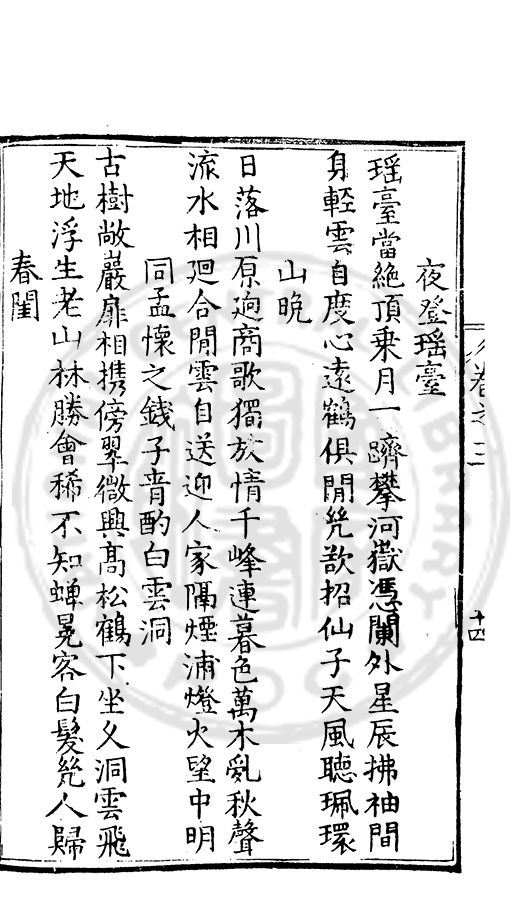 夜登瑶臺
瑶臺當絶頂乗月一躋攀河嶽憑闌外星辰拂袖間
身輕雲自度心遠鶴俱閒㡬欲招仙子天風聽珮環
山晩
日落川原逈商歌獨放情千峰連暮色萬木亂秋聲
流水相廻合閒雲自送迎人家隔煙浦燈火望中明
同孟懷之錢子青酌白雲洞
古樹敞巖扉相携傍翠微興髙松鶴下坐久洞雲飛
天地浮生老山林勝會稀不知蝉冕客白髮㡬人歸
春閨
卷之二
十四